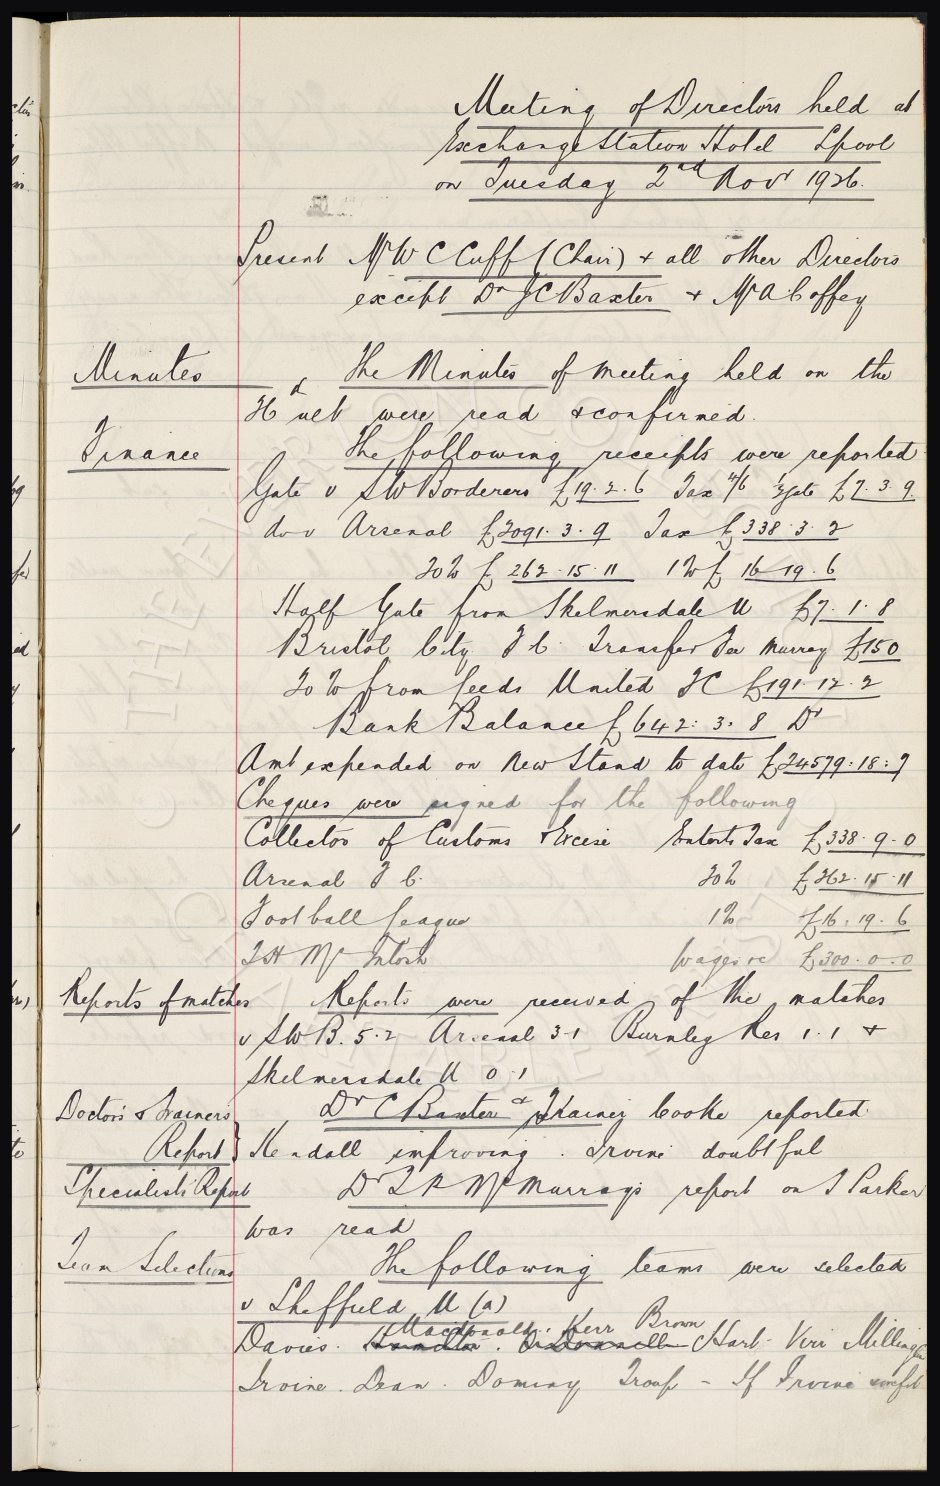 Meeting of Directors held at
Exchange Station Hotel Lpool
on Tuesday 2nd Novr 1926.
Present Mr W C Cuff (Chair) + all other Directors
except Dr J C Baxter + Mr A Coffey
Minutes The Minutes of meeting held on the
ult were read & confirmed.
Finance The following receipts were reported
Gate v S W Borderers £19.2.6 Tax 4/6 ½ gate £7.3.9.
do v Arsenal £2091.3.9 Tax £338.3.2
20% £262.15.11 1% £16.19.6
Half Gate from Skelmersdale U £7.1.8
Bristol City F C Transfer Fee Murray £150
20% from Leeds United FC £191.12.2
Bank Balance £642.3.8 Dr
Amt expended on New Stand to date £24579.18.7
Cheques were signed for the following
Collector of Customs & Excise Enterts Tax £338.9.0
Arsenal F C. 20% £262.15.11
Football League 1% £16.19.6
T H McIntosh Wages &c £300.0.0
Reports of matches Reports were received of the matches
v S W B. 5.2 Arsenal 3-1 Burnley Res 1.1 +
Skelmersdale U 0.1
Doctors & Trainers Dr C Baxter & Trainer Cooke reported
Report Kendall improving. Irvine doubtful
Specialists Report Dr T P McMurray's report on J Parker
was read
Team Selections The following teams were selected
v Sheffield U (a)
Macdonald. Kerr Brown
Davies. Hamilton. O'Donnell Hart Virr Millington
Irvine. Dean. Dominy Troup - If Irvine unfit